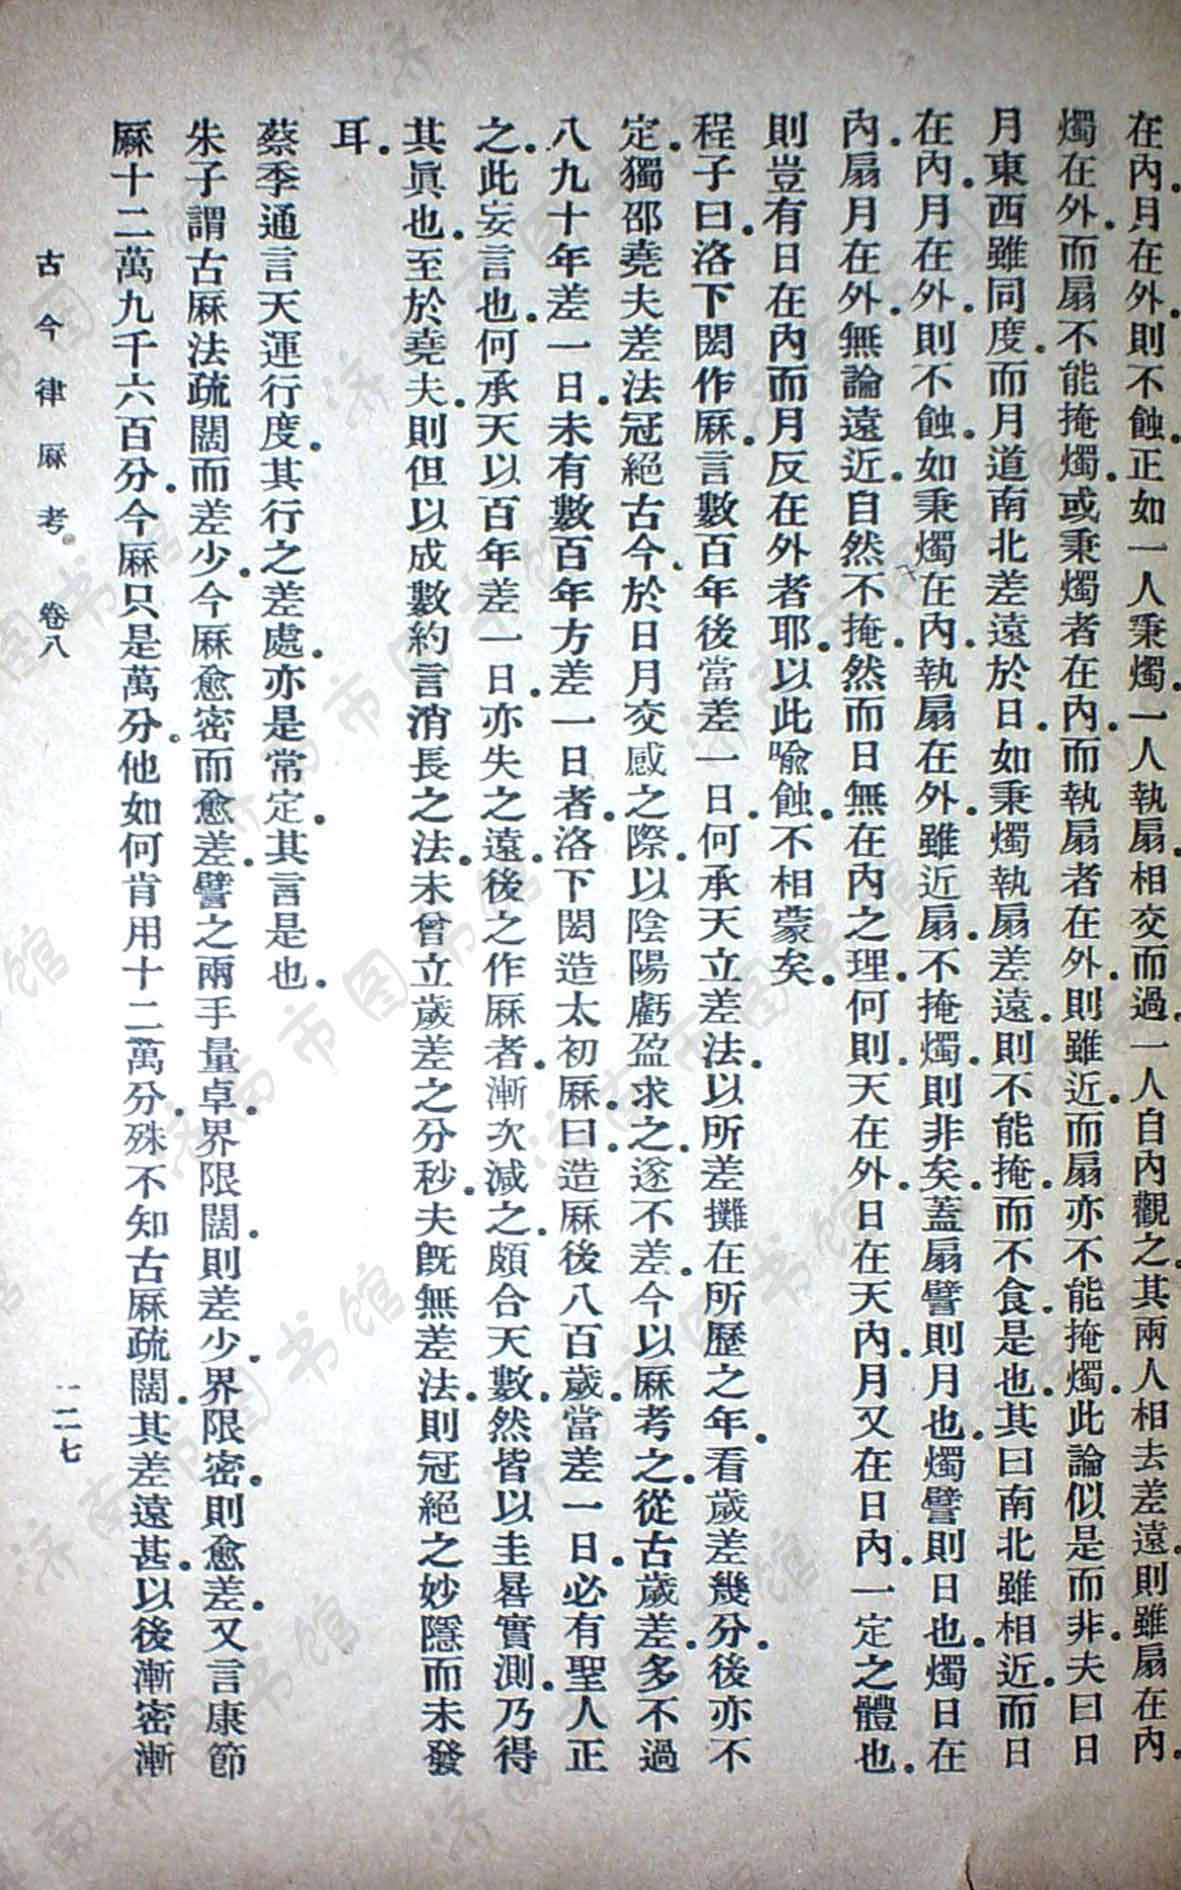 在內。月在外。則不蝕。正如一人秉燭。一人執扇。相交而過。一人自內觀之。其兩人相去差遠。則雖扇在內。
燭在外。而扇不能掩燭。或秉燭者在內。而執扇者在外。則雖近。而扇亦不能掩燭。此論似是而非。夫曰日
月東西雖同度。而月道南北差遠於日。如秉燭執扇差遠。則不能掩。而不食。是也。其曰南北雖相近。而日
在內。月在外。則不蝕。如秉燭在內。執扇在外。雖近扇。不掩燭。則非矣。蓋扇譬則月也。燭譬則日也。燭日在
內。扇月在外。無論遠近。自然不掩。然而日無在內之理。何則。天在外。日在天內。月又在日內。一定之體也。
則豈有日在內而月反在外者耶。以此喩蝕。不相蒙矣。
程子曰。洛下閎作厤。言數百年後當差一日。何承天立差法。以所差攤在所歷之年。看歲差幾分。後亦不
定。獨邵堯夫差法冠絕古今。於日月交感之際。以陰陽虧盈求之。遂不差。今以厤考之。從古歲差。多不過
八九十年差一日。未有數百年方差一日者。洛下閎造太初厤。曰。造厤後八百歲。當差一日。必有聖人正
之。此妄言也。何承天以百年差一日。亦失之遠。後之作厤者。漸次減之。頗合天數。然皆以圭晷實測。乃得
其眞也。至於堯夫。則但以成數約言消長之法。未曾立歲差之分秒。夫旣無差法。則冠絕之妙隱而未發
耳。
蔡季通言天運行度。其行之差處。亦是常定。其言是也。
朱子謂古厤法疏闊而差少。今厤愈密而愈差。譬之兩手量卓。界限闊。則差少。界限密。則愈差。又言康節
厤十二萬九千六百分。今厤只是萬分。他如何肯用十二萬分。殊不知古厤疏闊。其差遠甚。以後漸密漸
古今律厤考 卷八
一二七